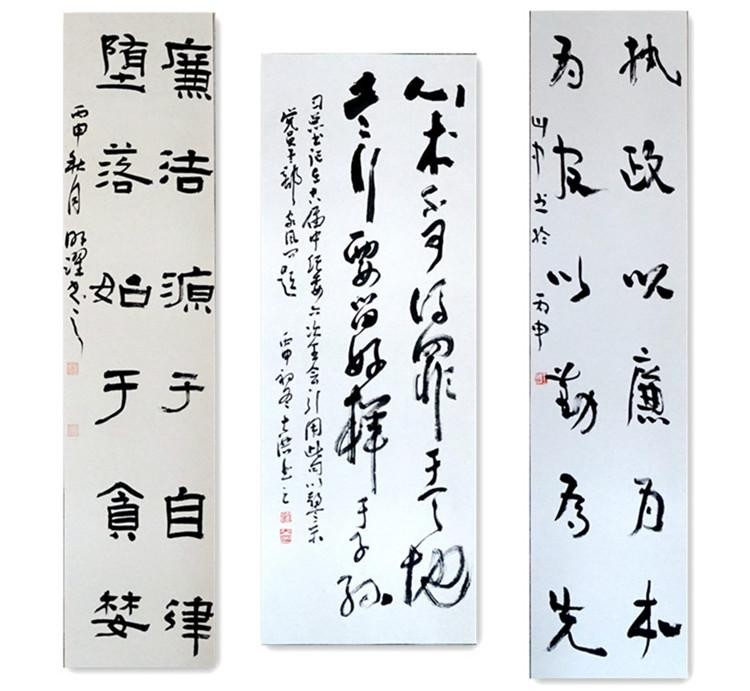 廉洁源于自律
堕落始于贪婪
丙申秋月
心术不可得罪于天地
言行要留好样于子孙
习总书记在十八届中纪委六次全会引用此句以警示
党员干部家风问题 丙申初冬
执政以廉为本
为官以勤为先
书于丙申